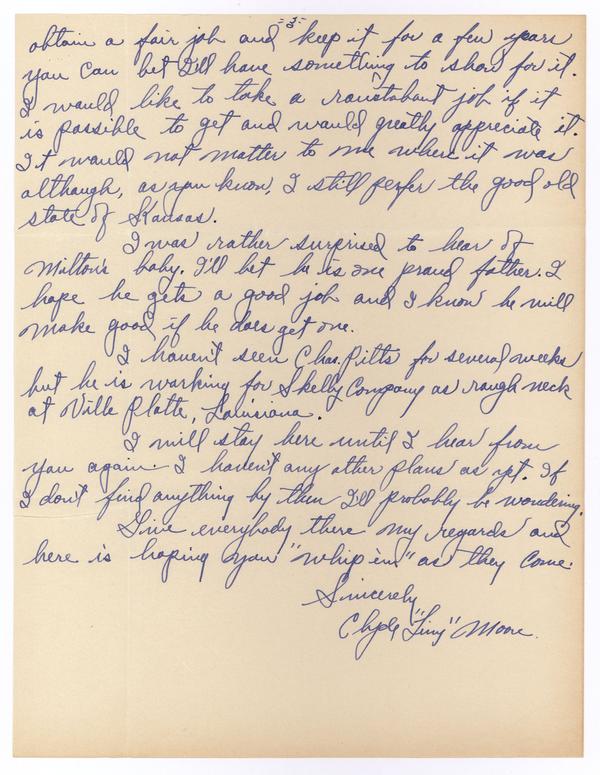 -3-
obtain a fair job and keep it for a few years
you can bet I'll have something to show for it.
I would like to take a roustabout job if it
is possible to get and would greatly appreciate it.
It would not matter to me where it was
although, as you know, I still perfer the good old
state of Kansas.
I was rather surprised to hear of
Milton's baby. I'll bet he is one proud father. I
hope he gets a good job and I know he will
make good if he does get one.
I haven't seen Chas. Pitts for several weeks
but he is working for Skelly Company as rough neck
at Ville Platte, Louisiana.
I will stay here until I hear from
you again - I haven't any other plans as yet. If
I don't find anything by then I'll probably be wondering.
Give everybody there my regards and
here is hoping you "whip 'em" as they come.
Sincerely
Clyde "Tiny" Moore.